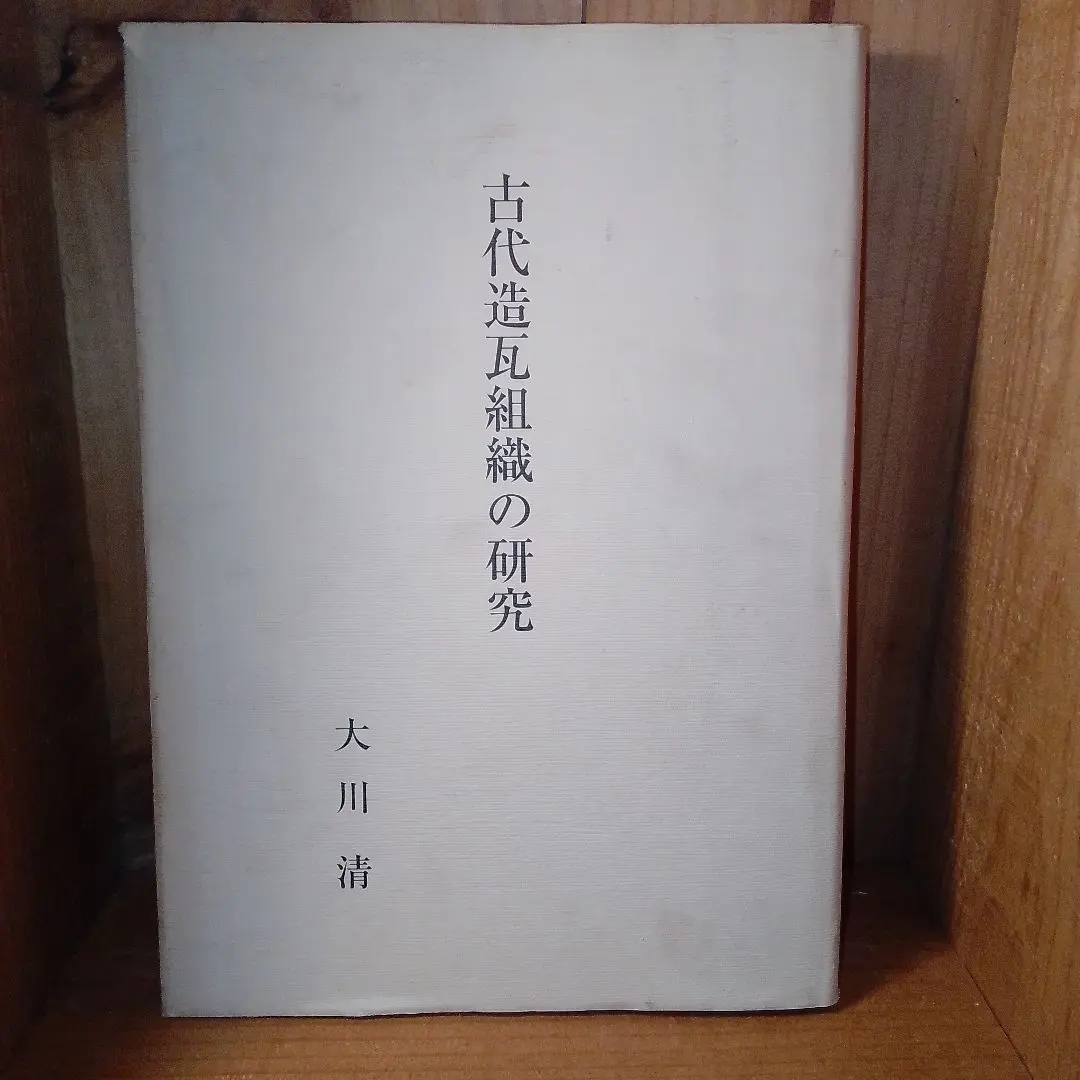 古代造瓦組織の研究
大川清